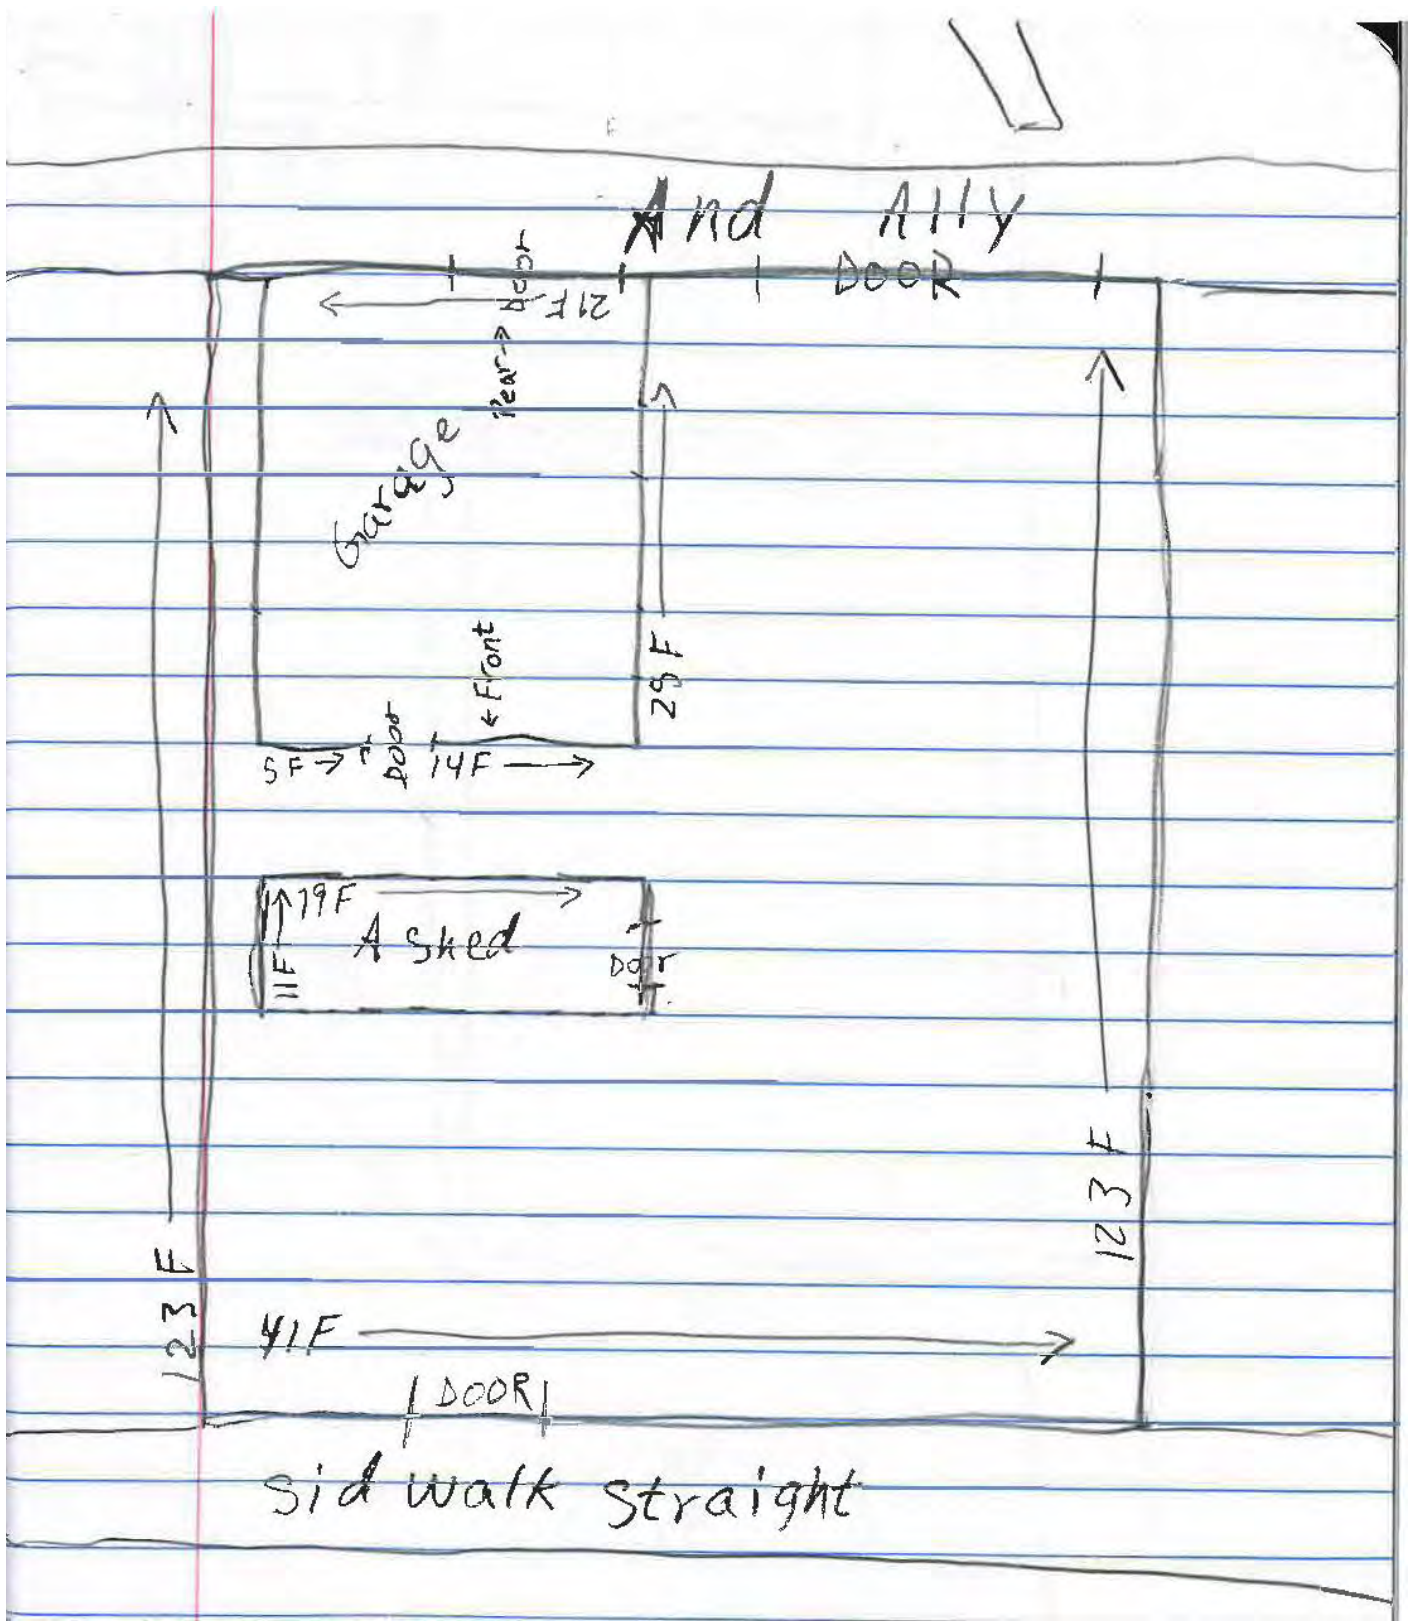 And Ally
Door
DOOR
21F
Rear →
Garage
← Front
28F
5F →
Door
14F
19F
A Shed
11F
Door
123F
123F
41F
DOOR
Sid walk straight